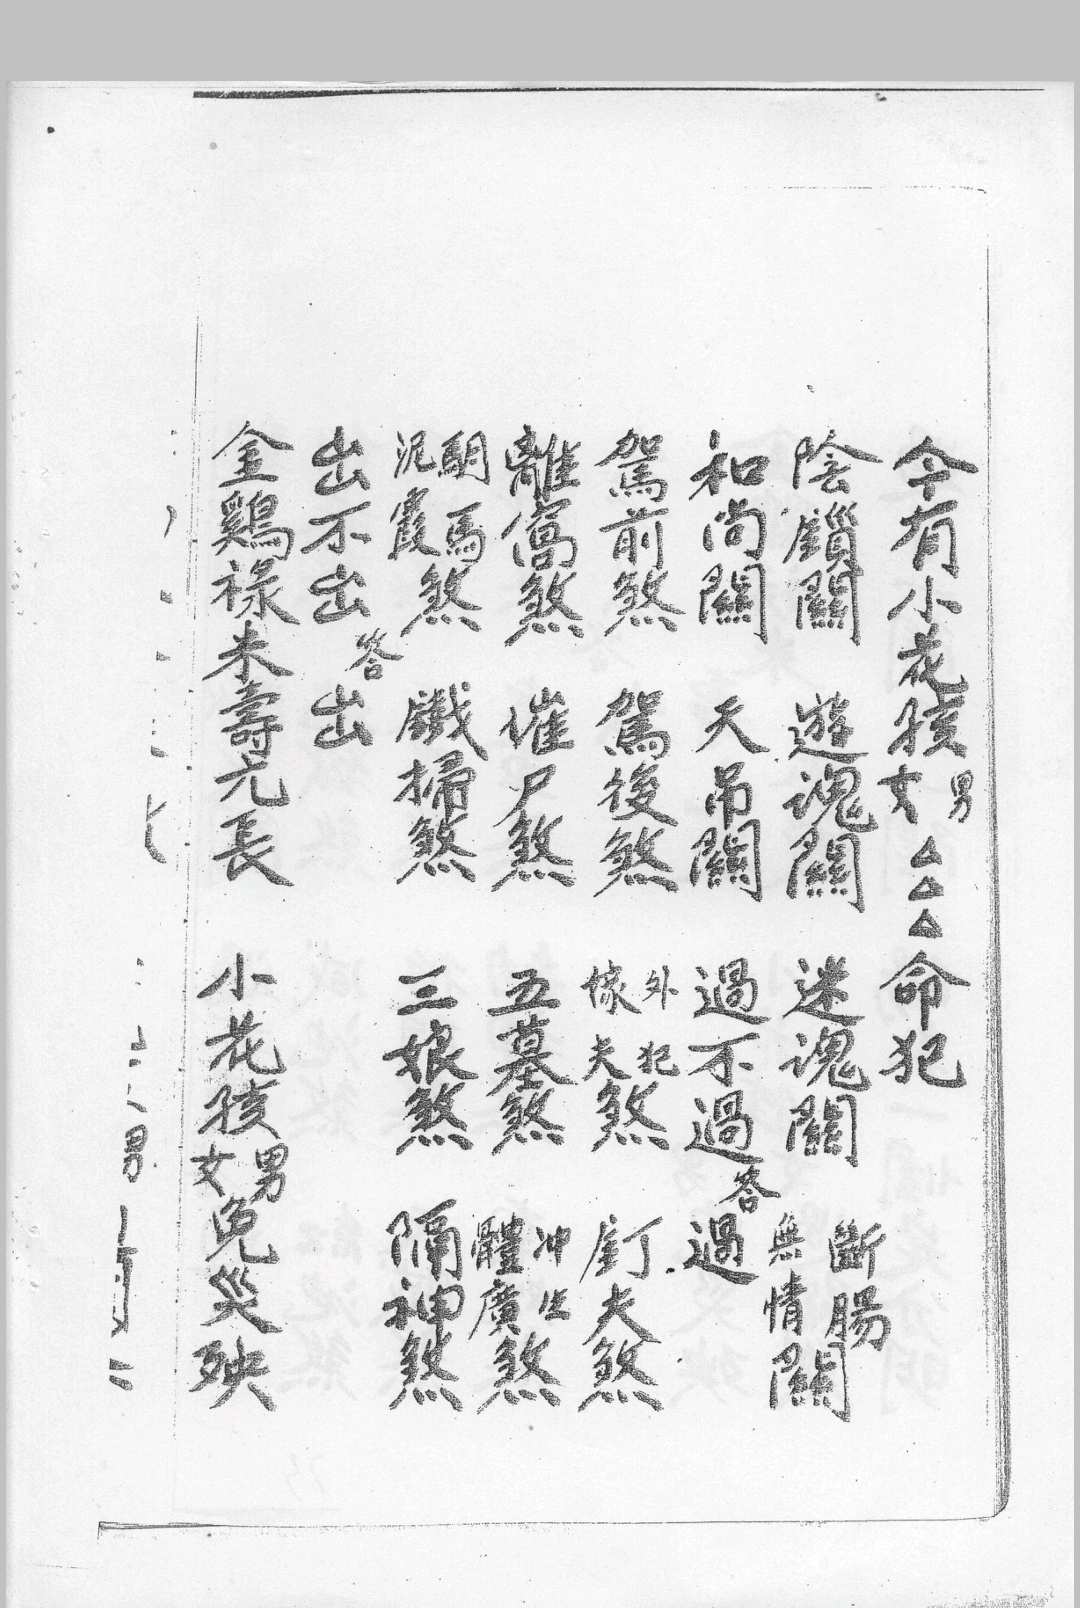 今有小花孩男女△△△命犯
陰鎖關 遊魂關 迷魂關 斷腸無情關
和尚關 天吊關 過不過答過
駕前煞 駕後煞 外犯嫁夫煞 釘夫煞
離窩煞 催尸煞 五墓煞 冲生體廣煞
馬泥霞煞 戲掃煞 三娘煞 隔神煞
出不出答出
金鷄祿未壽元長 小花孩男女免災殃